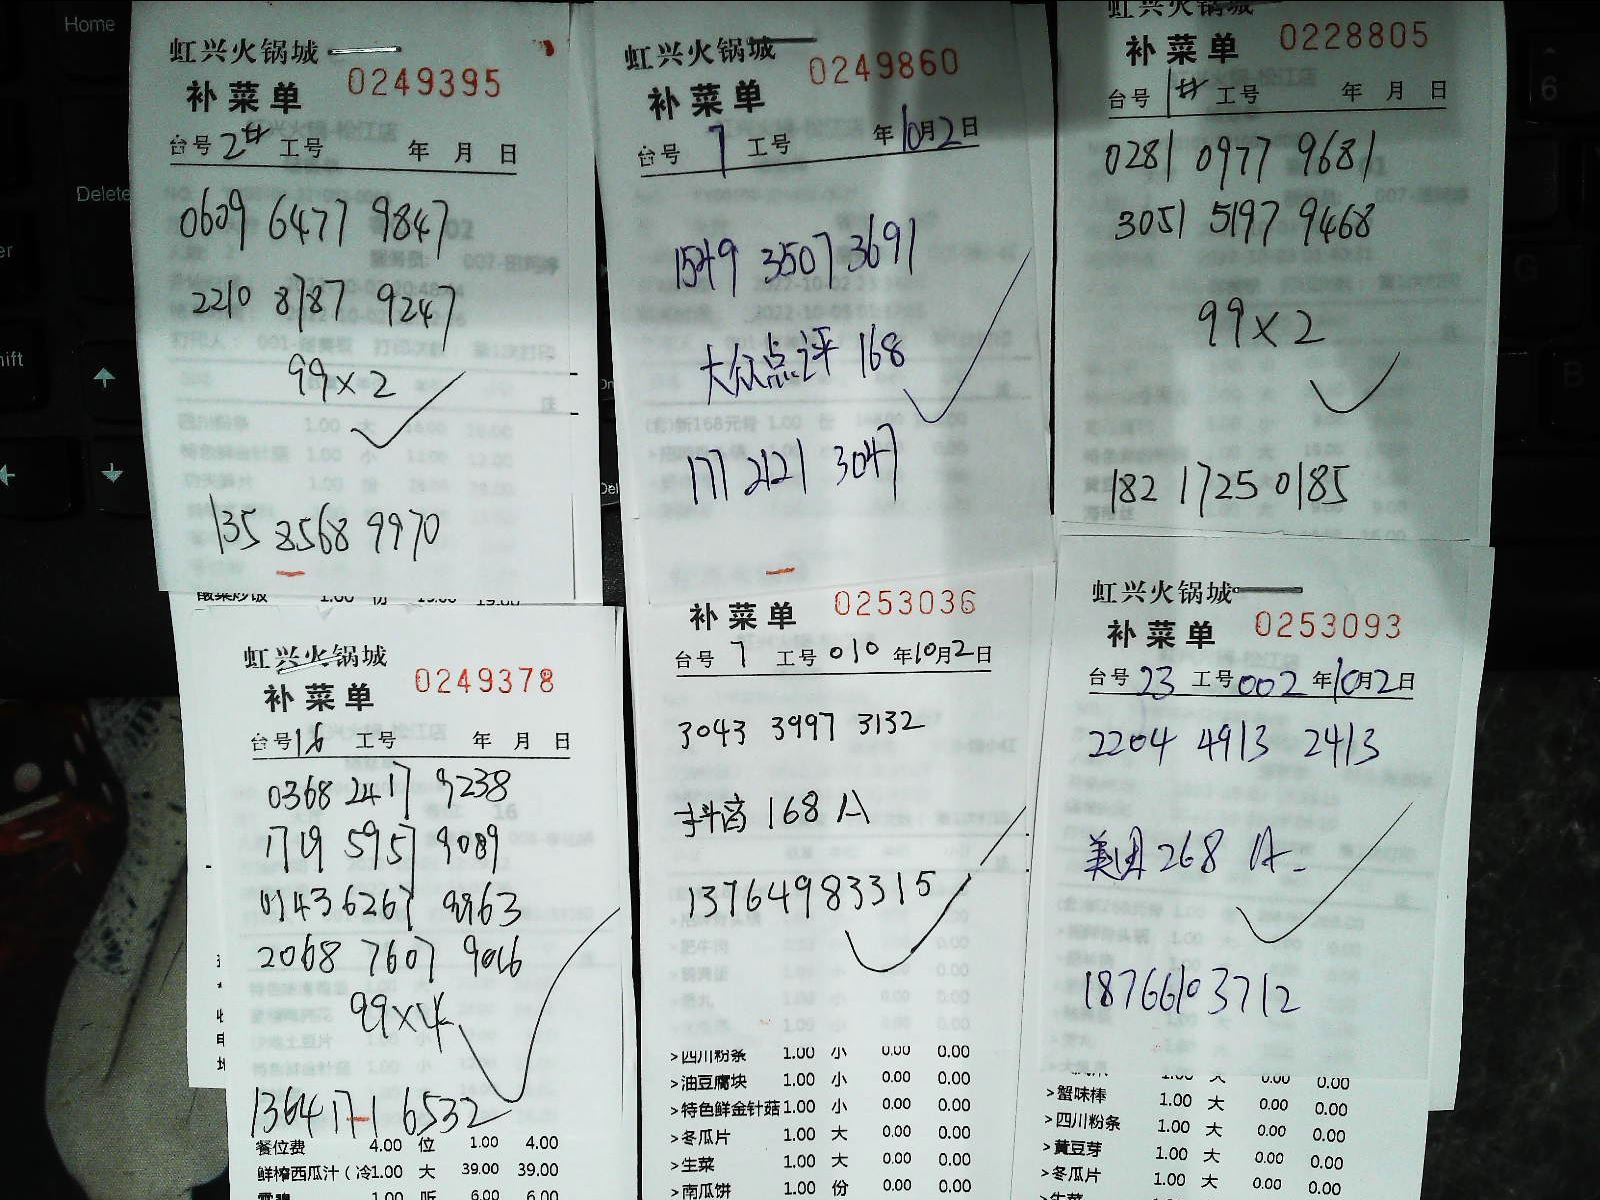 虹兴火锅城
补菜单 0249395
台号 2# 工号 年 月 日
0609 6477 9847
2210 8787 9247
99×2
135 8568 9970
虹兴火锅城
补菜单 0249860
台号 7 工号 年10月2日
1549 3507 3691
大众点评 168
171 2121 3047
虹兴火锅城
补菜单 0228805
台号 1# 工号 年 月 日
0281 0977 9681
3051 5197 9468
99×2
182 1725 0185
酸菜炒饭 1.00 份 15.00 15.00
虹兴火锅城
补菜单 0249378
台号 16 工号 年 月 日
0368 2417 9238
1719 5957 9089
0143 6267 9963
2068 7607 9016
99×4
136417-1 6532
餐位费 4.00 位 1.00 4.00
鲜榨西瓜汁（冷 1.00 大 39.00 39.00
雪碧 1.00 听 6.00 6.00
补菜单 0253036
台号 7 工号 010 年10月2日
3043 3997 3132
抖音 168 A
13764983315
>四川粉条 1.00 小 0.00 0.00
>油豆腐块 1.00 小 0.00 0.00
>特色鲜金针菇 1.00 小 0.00 0.00
>冬瓜片 1.00 大 0.00 0.00
>生菜 1.00 大 0.00 0.00
>南瓜饼 1.00 份 0.00 0.00
虹兴火锅城
补菜单 0253093
台号 23 工号 002 年10月2日
2204 4913 2413
美团 268 A
18766103712
1.00 大 0.00 0.00
>蟹味棒 1.00 大 0.00 0.00
>四川粉条 1.00 大 0.00 0.00
>黄豆芽 1.00 大 0.00 0.00
>冬瓜片 1.00 大 0.00 0.00
>生菜 1.00 大 0.00 0.00
Home
Delete